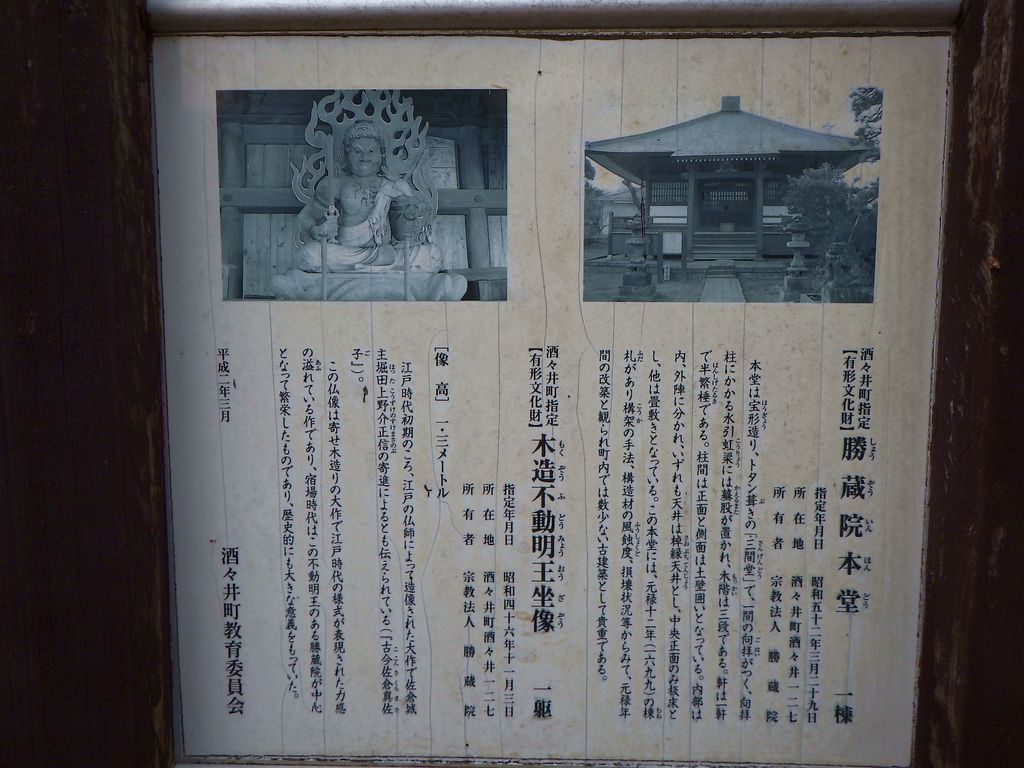 酒々井町指定
【有形文化財】勝蔵院本堂 一棟
しょう ぞう いん ほん どう
指定年月日 昭和五十二年三月二十九日
所在地 酒々井町酒々井一二七
所有者 宗教法人 勝蔵院
本堂は宝形造り、トタン葺きの「三間堂」で、一間の向拝がつく、向拝
柱にかかる水引虹梁には蟇股が置かれ、木階は三段である。軒は一軒
で半繁棰である。柱間は正面と側面は土壁囲いとなっている。内部は
内、外陣に分かれ、いずれも天井は棹縁天井とし、中央正面のみ板床と
し、他は畳敷きとなっている。この本堂には、元禄十二年(一六九九)の棟
札があり構架の手法、構造材の風蝕度、損壊状況等からみて、元禄年
間の改築と観られ町内では数少ない古建築として貴重である。
酒々井町指定
【有形文化財】木造不動明王坐像 一躯
もく ぞう ふ どう みょう おう ざ ぞう
指定年月日 昭和四十六年十一月三日
所在地 酒々井町酒々井一二七
所有者 宗教法人 勝蔵院
[像高] 一・三メートル
江戸時代初期のころ、江戸の仏師によって造像された大作で佐倉城
主堀田上野介正信の寄進によるとも伝えられている(『古今佐倉真佐
子』)。
この仏像は寄せ木造りの大作で江戸時代の様式が表現された力感
の溢れている作であり、宿場時代はこの不動明王のある勝蔵院が中心
となって繁栄したものであり、歴史的にも大きな意義をもっていた。
平成二年三月
酒々井町教育委員会